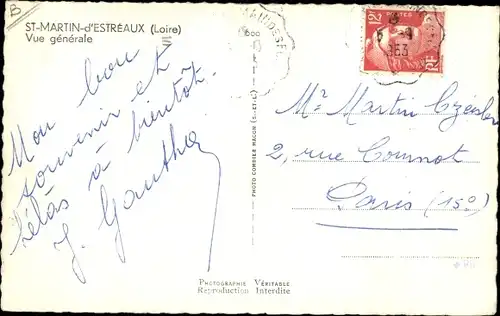 B
ST-MARTIN-d'ESTRÉAUX (Loire)
Vue générale
Mon bon
souvenir et
hélas à bientôt.
J. Gauthier
PHOTO COMBIER MACON (S.-ET-L.)
PHOTOGRAPHIE VÉRITABLE
Reproduction Interdite
12F
POSTES
RF
953
Mr Martin
2, rue Cournot
Paris (15e)